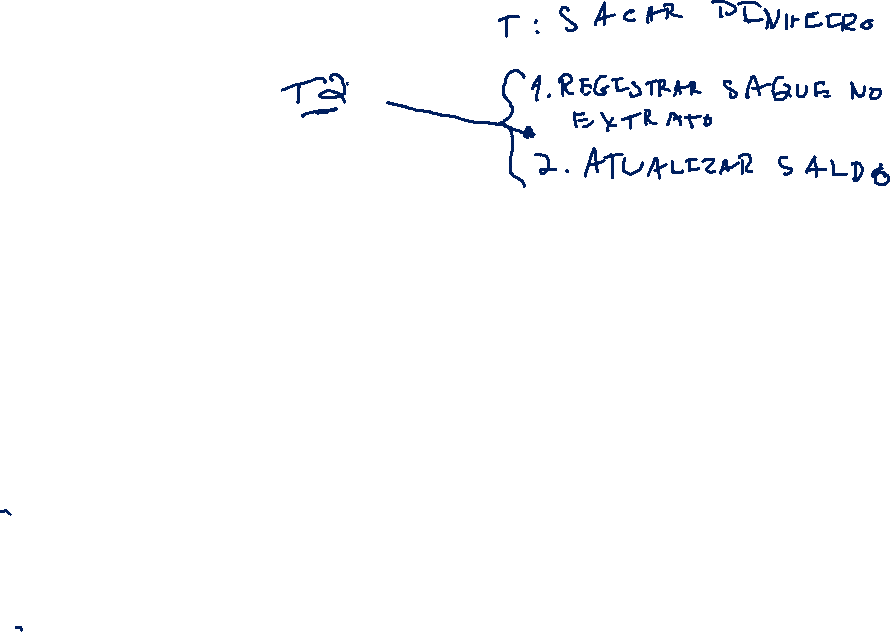 T: SACAR DINHEIRO
T2
1. REGISTRAR SAQUE NO
EXTRATO
2. ATUALIZAR SALDO